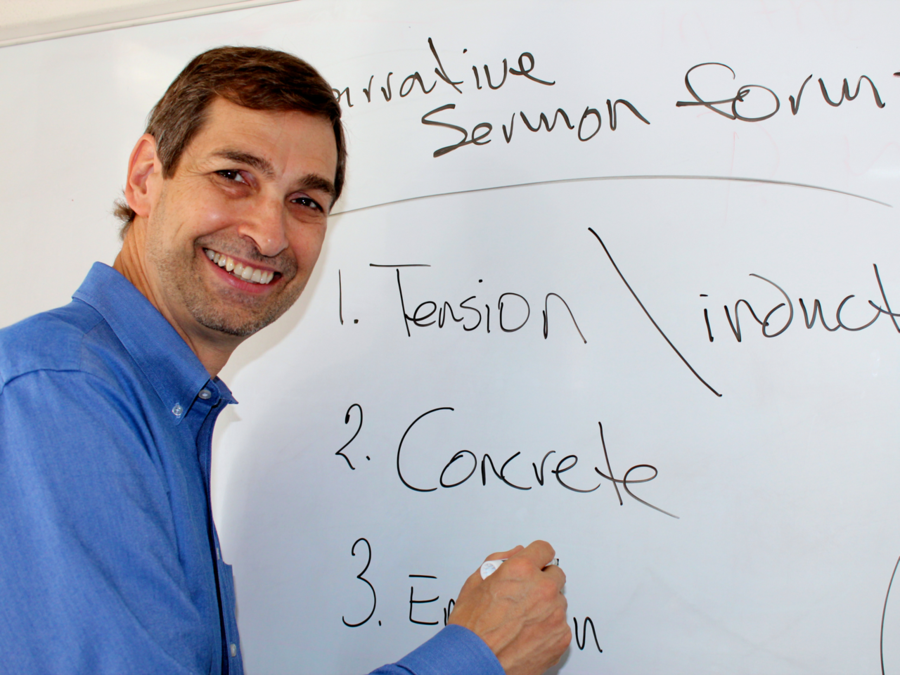 arrative
Sermon form
1. Tension \ induct
2. Concrete
3.